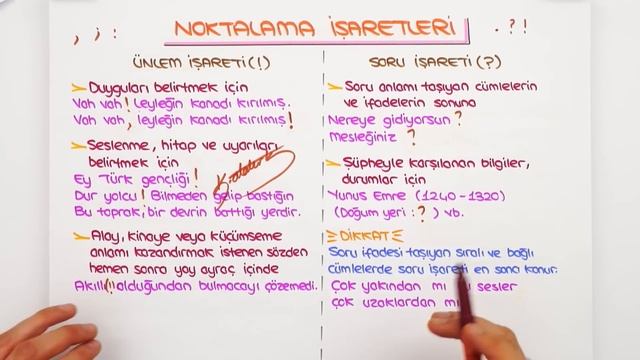 , ; :
NOKTALAMA İŞARETLERİ
. ? !
ÜNLEM İŞARETİ (!)
Duyguları belirtmek için
Vah vah! Leyleğin kanadı kırılmış.
Vah vah, leyleğin kanadı kırılmış!
Seslenme, hitap ve uyarıları
belirtmek için
Ey Türk gençliği!
Dur yolcu! Bilmeden gelip bastığın
Bu toprak, bir devrin battığı yerdir.
Alay, kinaye veya küçümseme
anlamı kazandırmak istenen sözden
hemen sonra yay ayraç içinde
Akıllı(!) olduğundan bulmacayı çözemedi.
SORU İŞARETİ (?)
Soru anlamı taşıyan cümlelerin
ve ifadelerin sonuna
Nereye gidiyorsun?
Mesleğiniz ?
Şüpheyle karşılanan bilgiler,
durumlar için
Yunus Emre (1240-1320)
(Doğum yeri : ?) vb.
DİKKAT
Soru ifadesi taşıyan sıralı ve bağlı
cümlelerde soru işareti en sona konur:
Çok yakından mı sesler
çok uzaklardan mı